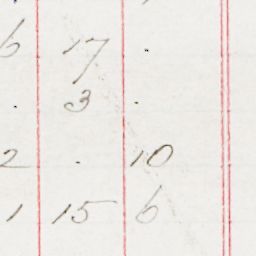 6 17 .
. 3 .
2 . 10
1 15 6